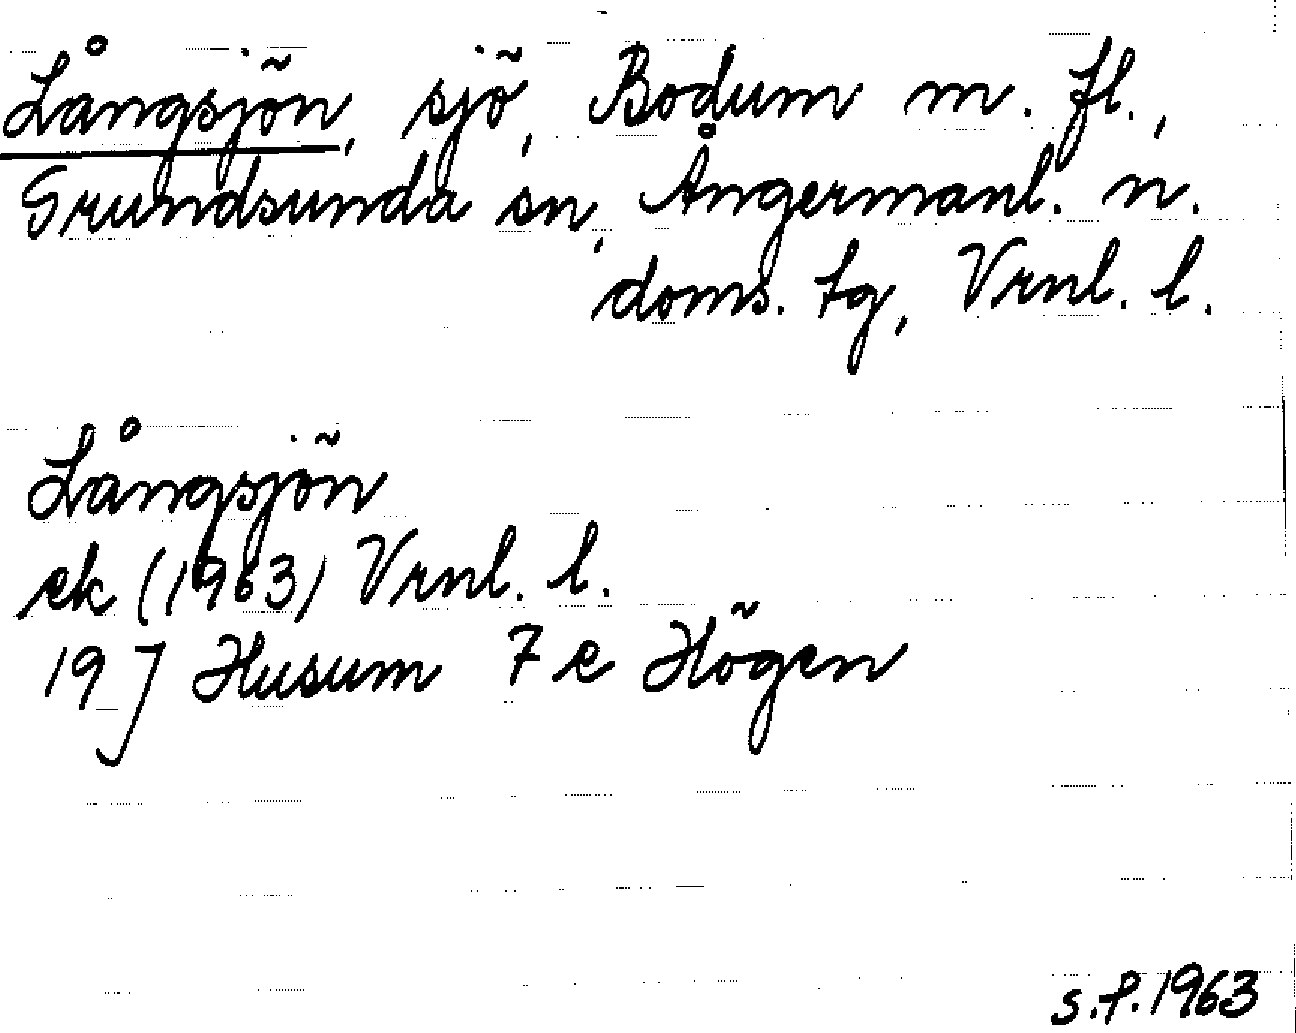 Långsjön, sjö, Bodum m. fl.,
Grundsunda sn, Ångermanl. n.
doms. tg, Vrnl. l.
Långsjön
ek (1963) Vrnl. l.
19 J Husum 7 e Högen
s.f. 1963